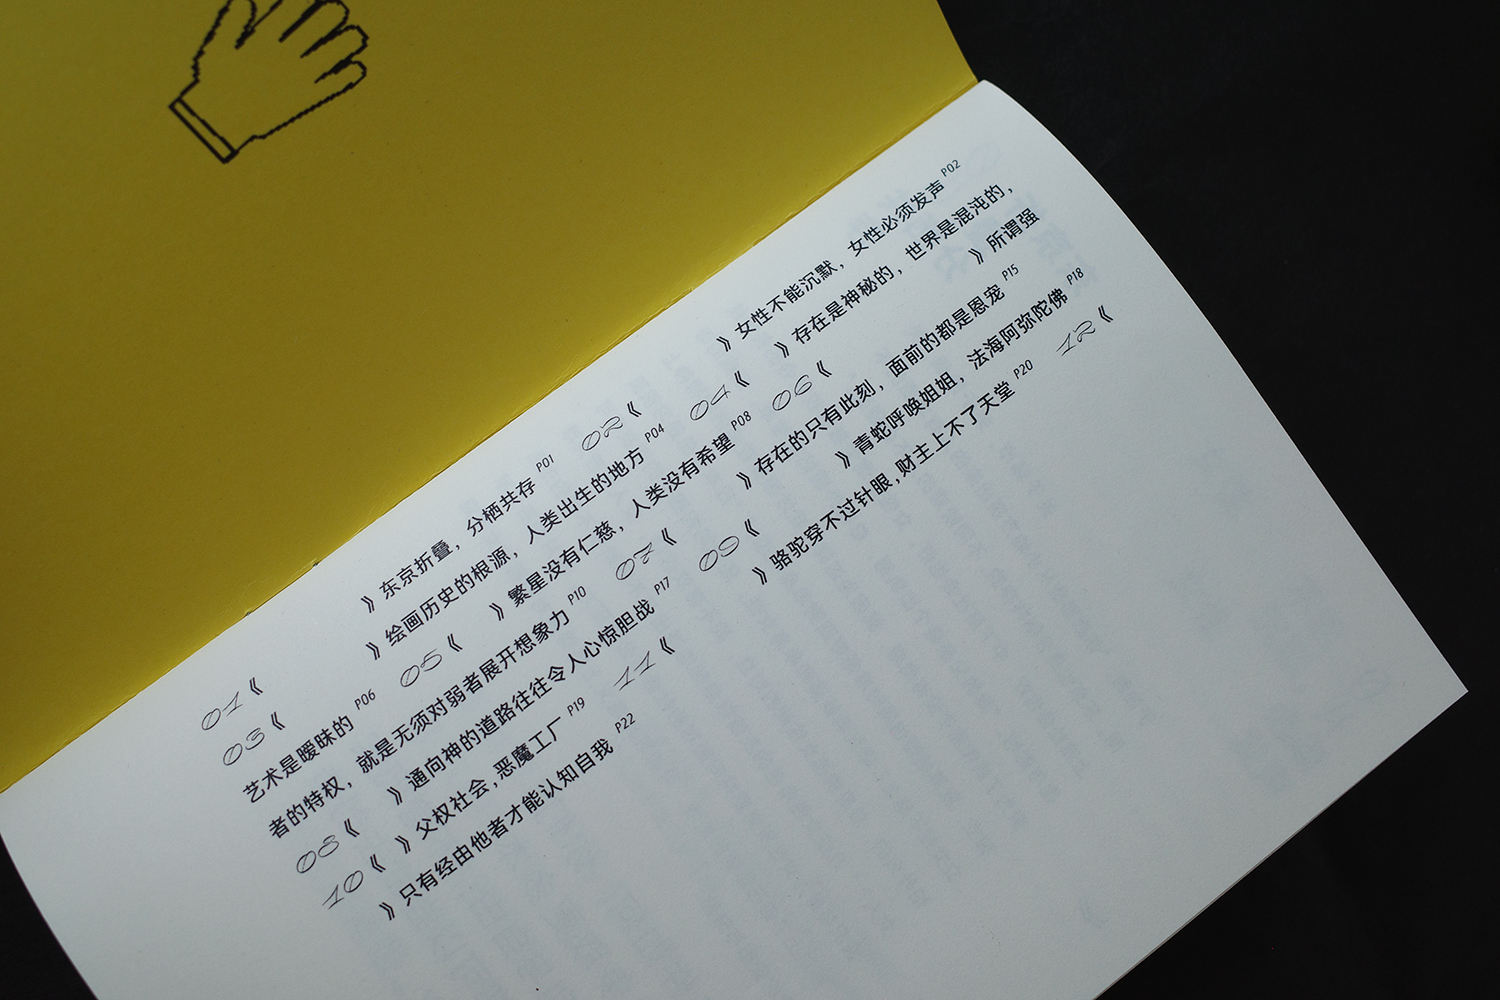 01《 》东京折叠，分栖共存 P01 02《 》女性不能沉默，女性必须发声 P02
03《 》绘画历史的根源，人类出生的地方 P04 04《 》存在是神秘的，世界是混沌的，
艺术是暧昧的 P06 05《 》繁星没有仁慈，人类没有希望 P08 06《 》所谓强
者的特权，就是无须对弱者展开想象力 P10 07《 》存在的只有此刻，面前的都是恩宠 P15
08《 》通向神的道路往往令人心惊胆战 P17 09《 》青蛇呼唤姐姐，法海阿弥陀佛 P18
10《 》父权社会,恶魔工厂 P19 11《 》骆驼穿不过针眼,财主上不了天堂 P20 12《
》只有经由他者才能认知自我 P22